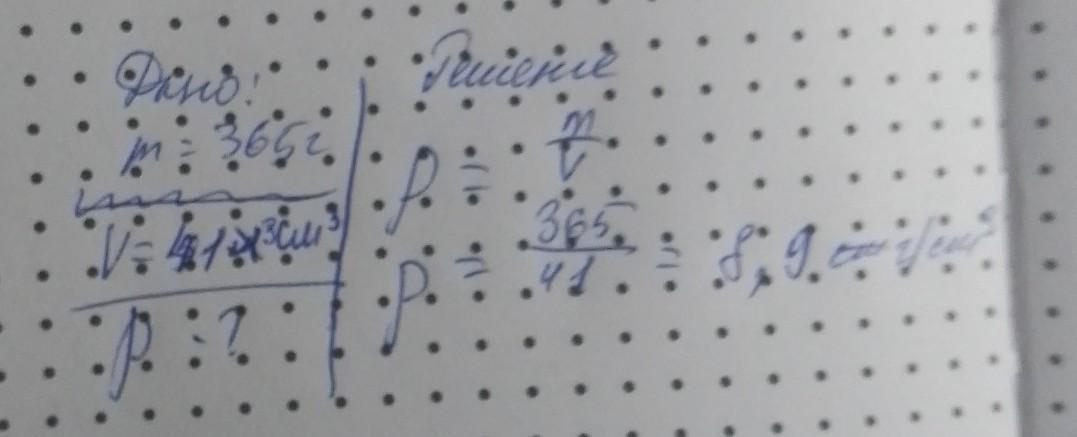 Дано:
m = 365г
V = 41 см³
ρ - ?
Решение
ρ = m/V
ρ = 365/41 = 8,9 г/см³